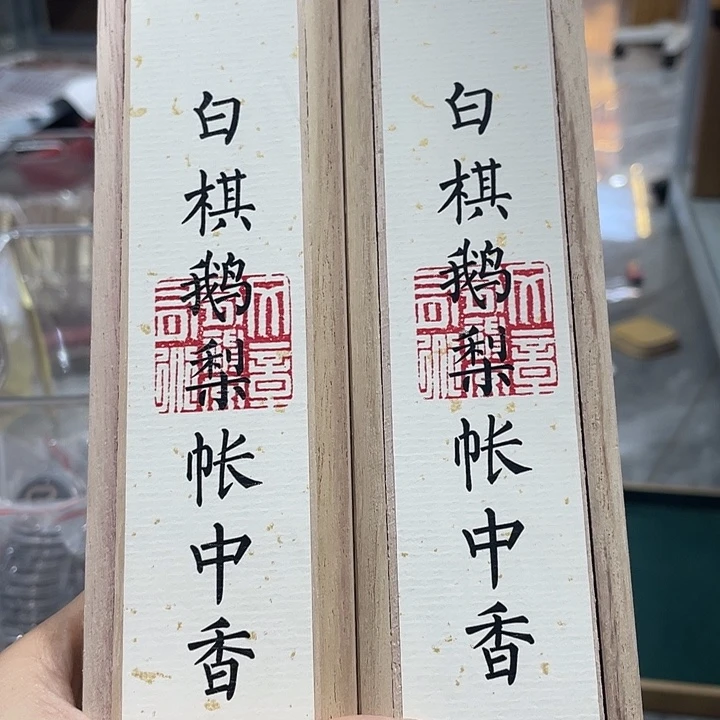 白棋鹅梨帐中香
白棋鹅梨帐中香